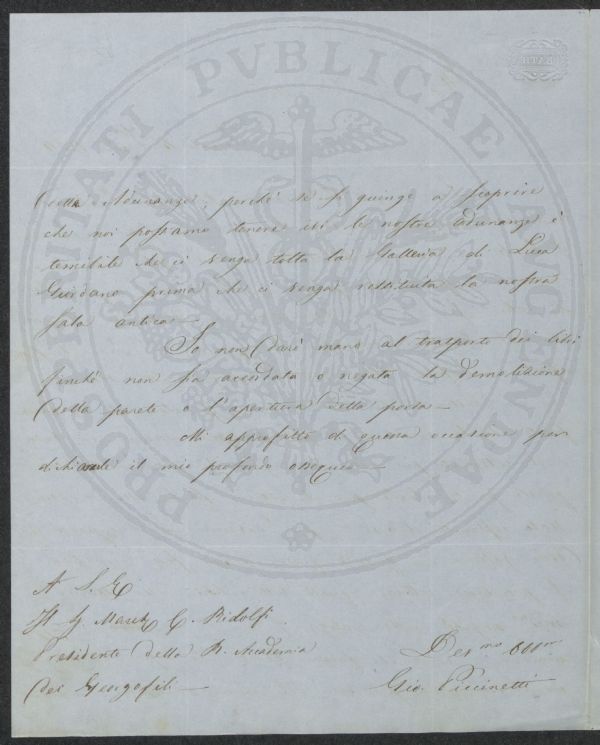 PROSPERITATI PVBLICAE AVGENDAE
BATH
delle Adunanze, perché se si giunge a scoprire
che noi possiamo tenere ivi le nostre adunanze è
temibile che ci venga tolta la Galleria di Luca
Giordano prima che ci venga restituita la nostra
sala antica —
Io non darò mano al trasporto dei libri
finché non sia accordata o negata la demolizione
della parete o l'apertura della porta —
Mi approfitto di questa occasione per
dichiararle il mio profondo ossequio —
A S. E.
Il Sig. March. C. Ridolfi
Presidente della R. Accademia
dei Georgofili —
Dev.mo
Gio. Piccinetti